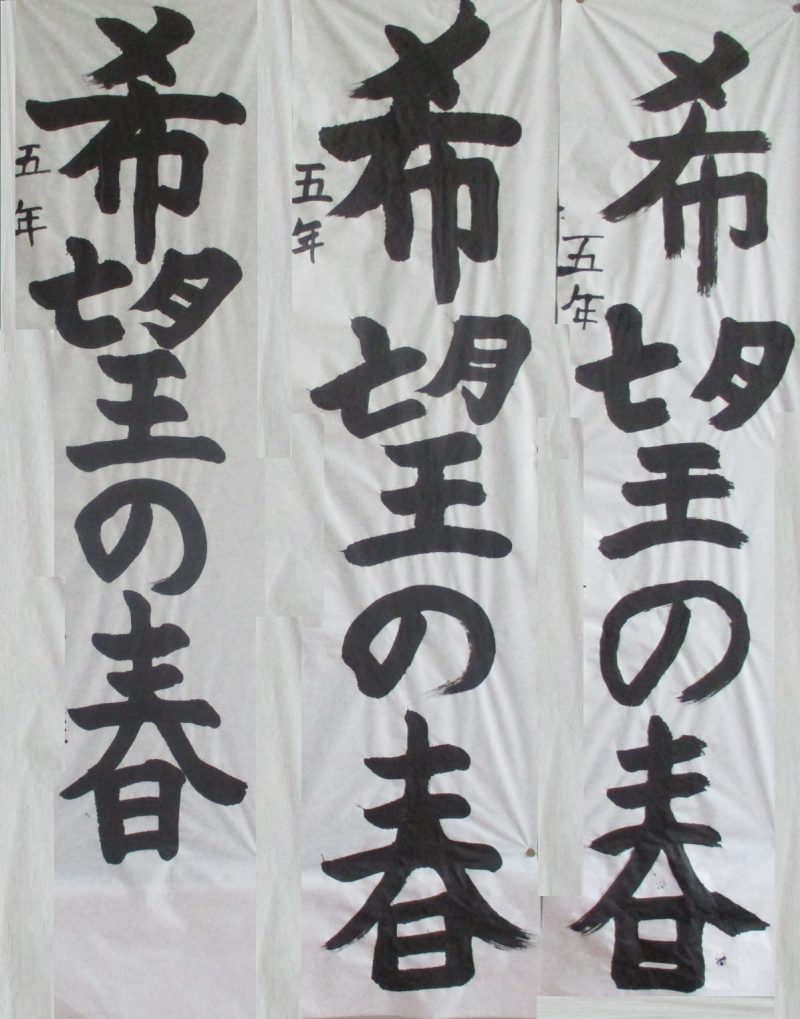 希望の春
五年
希望の春
五年
希望の春
五年